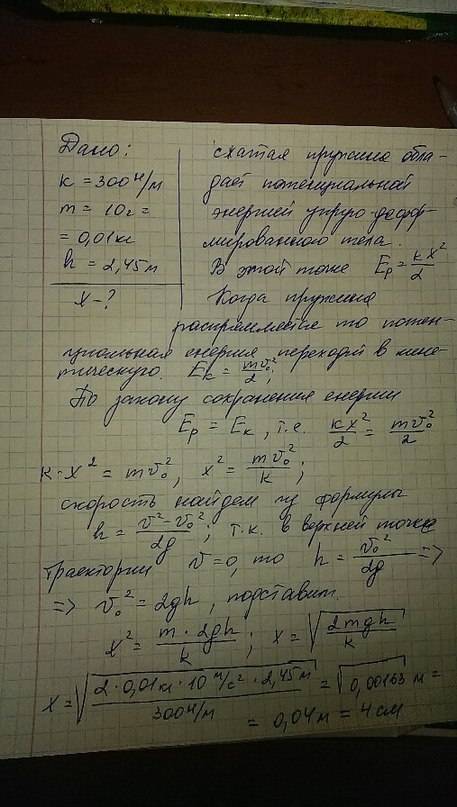 Дано:
к = 300 Н/м
m = 10г =
= 0,01кг
h = 2,45 м
х - ?
сжатая пружина обла-
дает потенциальной
энергией упруго-дефор-
мированного тела.
В этой точке Eр = кх²/2
Когда пружина
распрямляется то потен-
циальная енергия переходит в кине-
тическую. Eк = mv₀²/2;
По закону сохранения енергии
Eр = Eк, т.е. кх²/2 = mv₀²/2
к·х² = mv₀², х² = mv₀²/к;
скорость найдем из формулы
h = v²-v₀²/2g; т.к. в верхней точке
траектории v=0, то h = v₀²/2g =>
=> v₀² = 2gh, подставим.
х² = m·2gh/к; х = √2mgh/к
х = √2·0,01кг·10 м/с²·2,45м/300Н/м = √0,00163 м =
= 0,04м = 4см